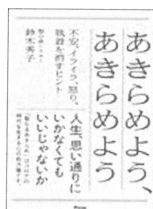 あきらめよう、
あきらめよう
不安、イライラ、怒り、
執着を消すヒント
鈴木秀子
人生、思い通りに
いかなくても
いいじゃないか